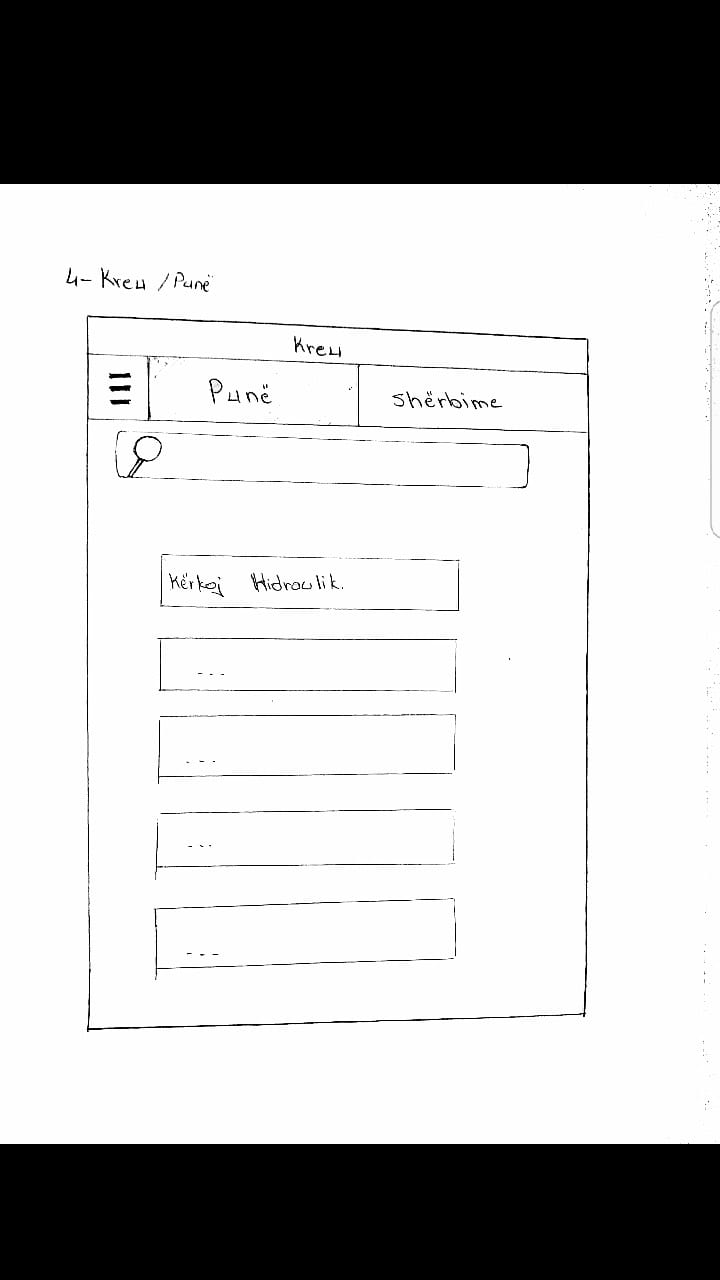 4- Kreu / Punë
Kreu
Punë
Shërbime
Kërkoj Hidraulik.
---
---
---
---